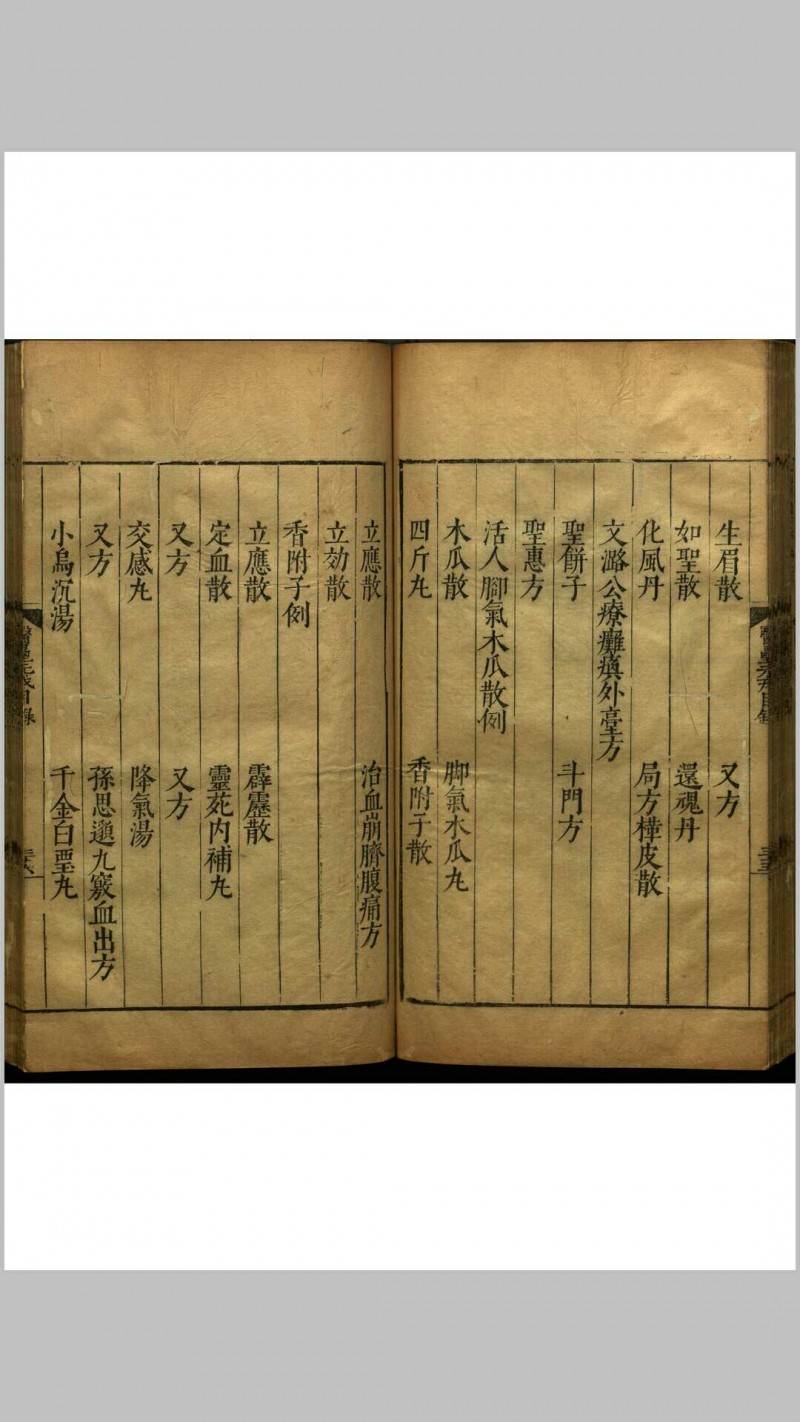 生眉散 又方
如聖散 還魂丹
化風丹 局方樺皮散
文潞公療癱瘼外臺方
聖餅子 斗門方
聖惠方
活人腳氣木瓜散例
木瓜散 腳氣木瓜丸
四斤丸 香附子散
立應散 治血崩臍腹痛方
立効散
香附子例
立應散 霹靂散
定血散 靈苑內補丸
又方 又方
交感丸 降氣湯
又方 孫思邈九竅血出方
小烏沉湯 千金白堊丸